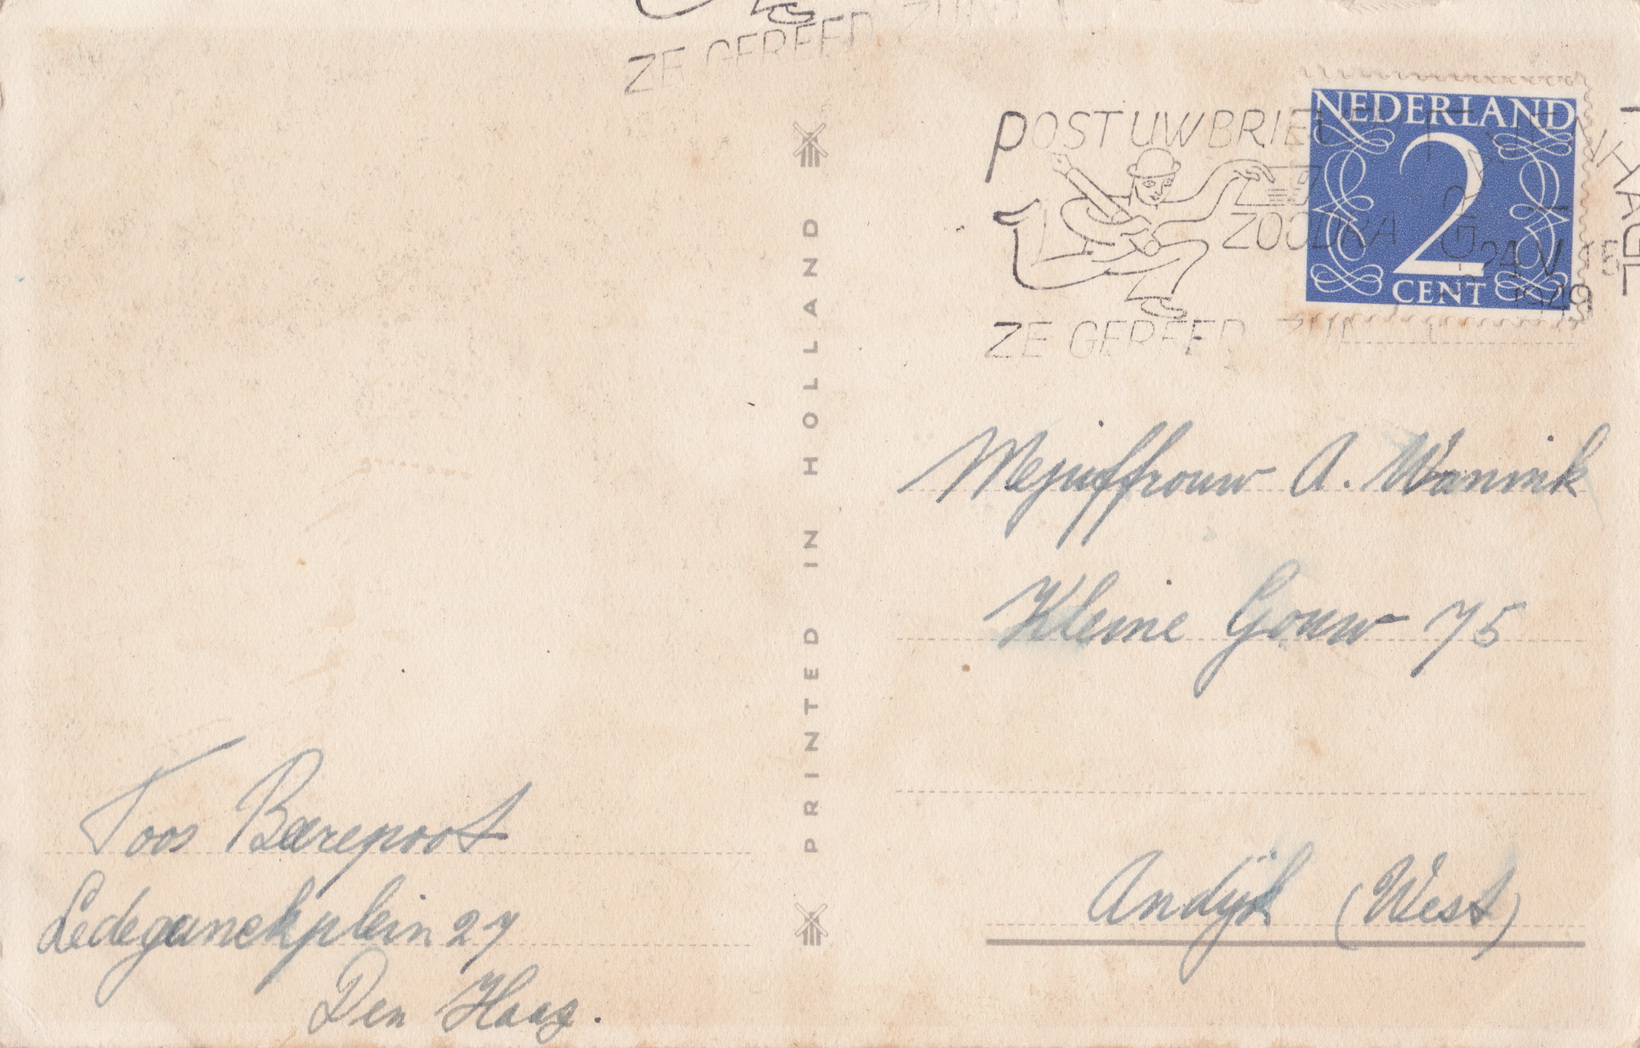 ZE GEREED ZIJN
POST UW BRIEVEN
ZODRA
ZE GEREED ZIJN
'S-GRAVENHAGE
24 V 15
1949
NEDERLAND
2
CENT
PRINTED IN HOLLAND
Mejuffrouw A. Wanink
Kleine Gouw 75
Andijk (West)
Toos Barepoot
Ledeganckplein 27
Den Haag.